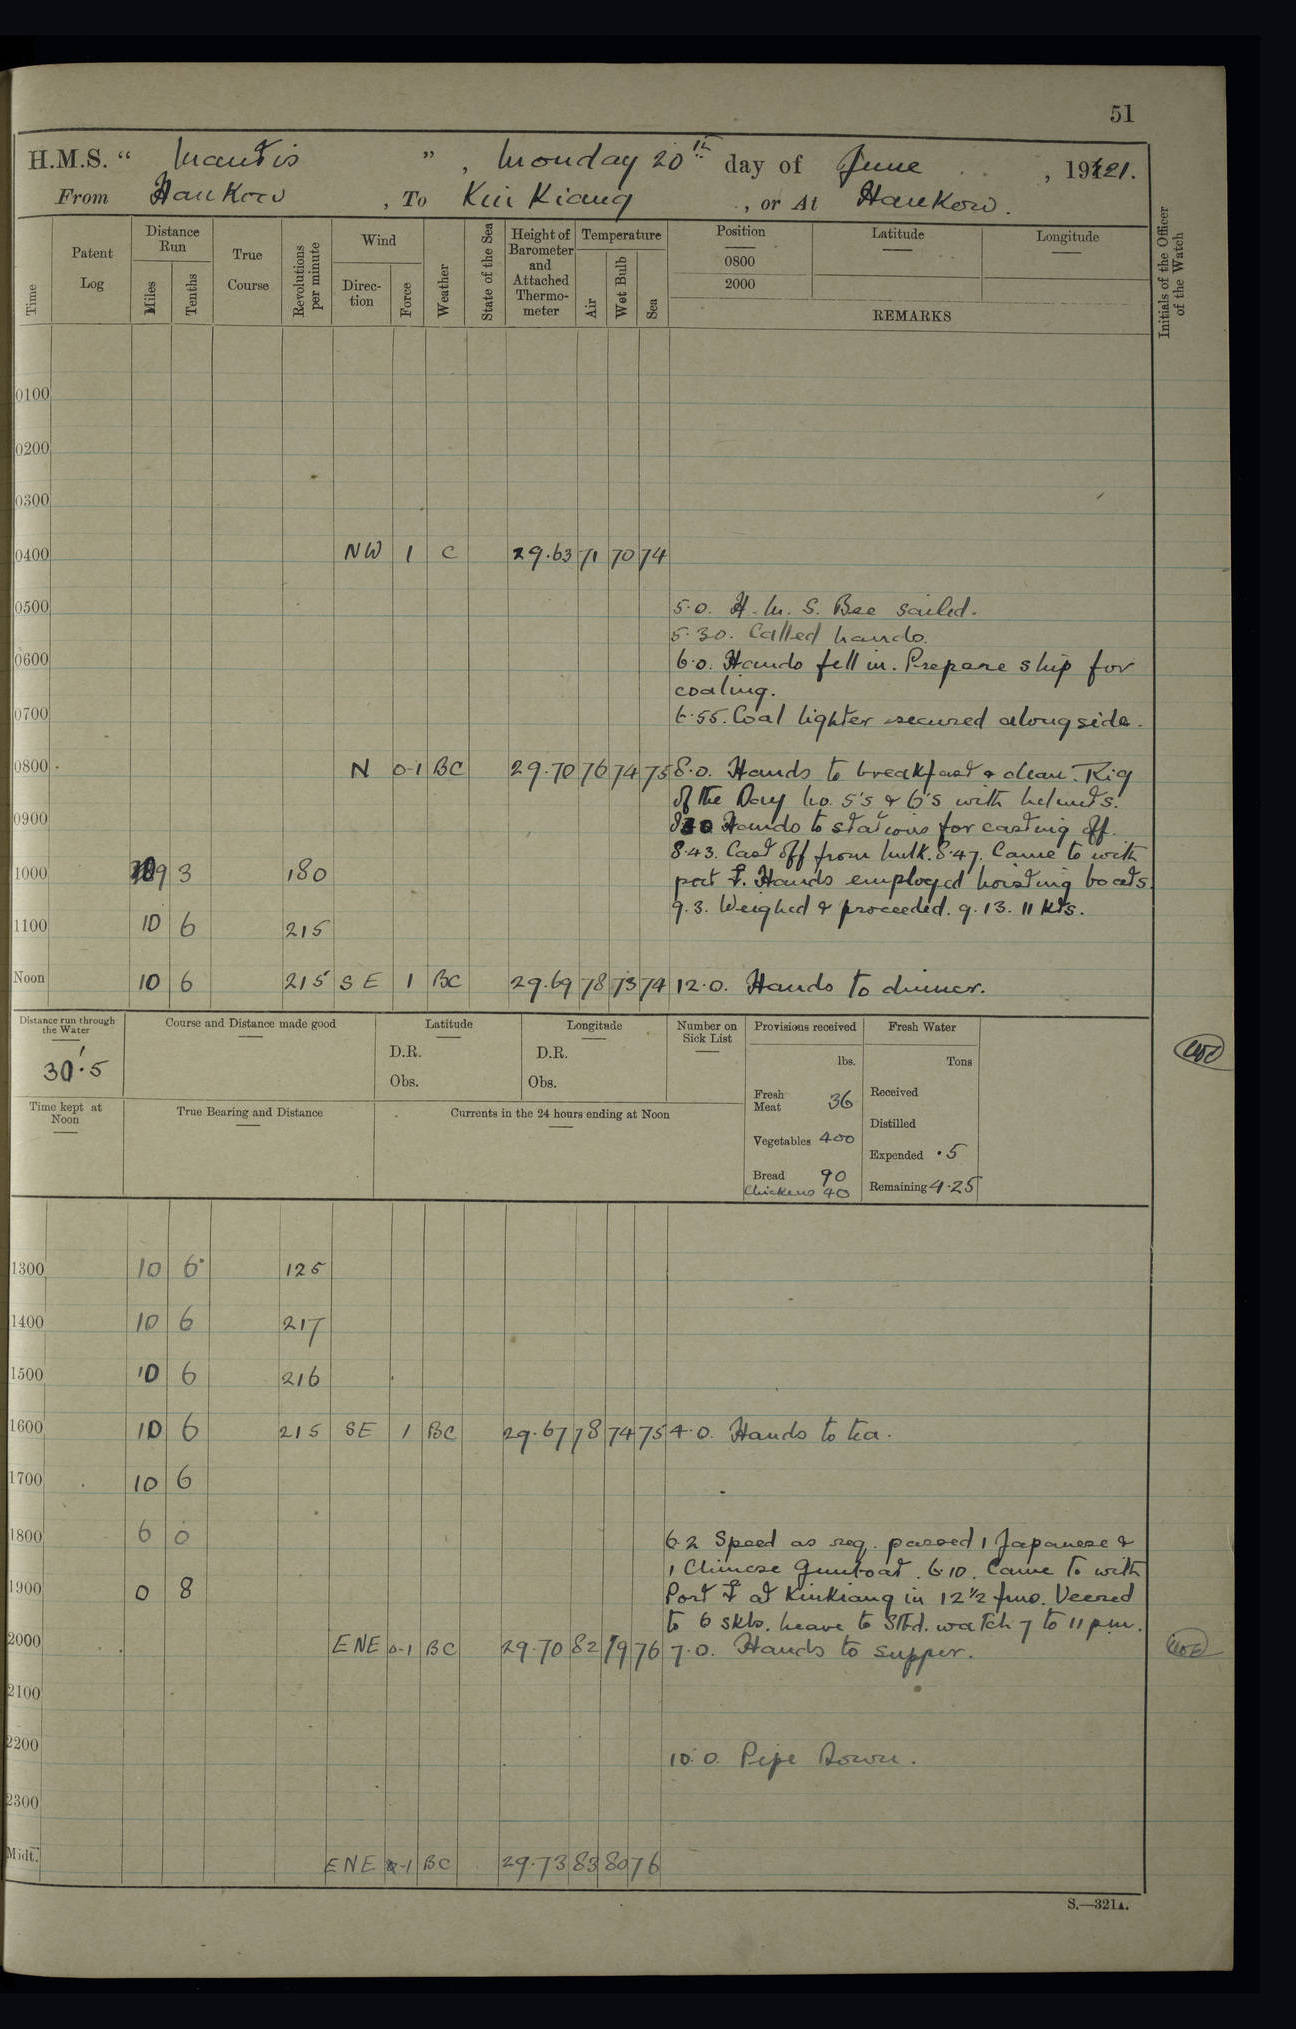 51
H.M.S. "Mantis", Monday 20th day of June, 1921.
From Hankow, To Kiu Kiang, or At Hankow.
Time
Patent Log
Distance Run
Miles
Tenths
True Course
Revolutions per minute
Wind
Direc-tion
Force
Weather
State of the Sea
Height of Barometer and Attached Thermo-meter
Temperature
Air
Wet Bulb
Sea
Position
0800
2000
Latitude
Longitude
REMARKS
Initials of the Officer of the Watch
0100
0200
0300
0400 NW 1 C 29.63 71 70 74
0500 5.0. H.M.S. Bee sailed.
5.30. Called hands.
0600 6.0. Hands fell in. Prepare ship for
coaling.
0700 6.55. Coal lighter secured alongside.
0800 N 0-1 BC 29.70 76 74 75 8.0. Hands to breakfast & clean. Rig
of the Day No. 5's & 6's with helmets.
0900 830 Hands to stations for casting off.
8.43. Cast off from hulk. 8.47. Came to with
1000 9 3 180 port. Hands employed hoisting boats.
9.3. Weighed & proceeded. 9.13. 11 kts.
1100 10 6 215
Noon 10 6 215 SE 1 BC 29.69 78 73 74 12.0. Hands to dinner.
Distance run through the Water
30'.5
Course and Distance made good
Latitude
D.R.
Obs.
Longitude
D.R.
Obs.
Number on Sick List
Provisions received
lbs.
Fresh Meat 36
Vegetables 400
Bread 90
Chickens 40
Fresh Water
Tons
Received
Distilled
Expended .5
Remaining 4.25
Time kept at Noon
True Bearing and Distance
Currents in the 24 hours ending at Noon
1300 10 6 125
1400 10 6 217
1500 10 6 216
1600 10 6 215 SE 1 BC 29.67 78 74 75 4.0. Hands to tea.
1700 10 6
1800 6 0 6.2 Speed as req. passed 1 Japanese &
1 Chinese Gunboat. 6.10. Came to with
1900 0 8 Port at Kinkiang in 12½ fms. Veered
to 6 skls. leave to Stbd. watch 7 to 11 pm.
2000 ENE 0-1 BC 29.70 82 79 76 7.0. Hands to supper.
2100
2200 10.0. Pipe Down.
2300
Midt. ENE 0-1 BC 29.73 83 80 76
S.—321A.